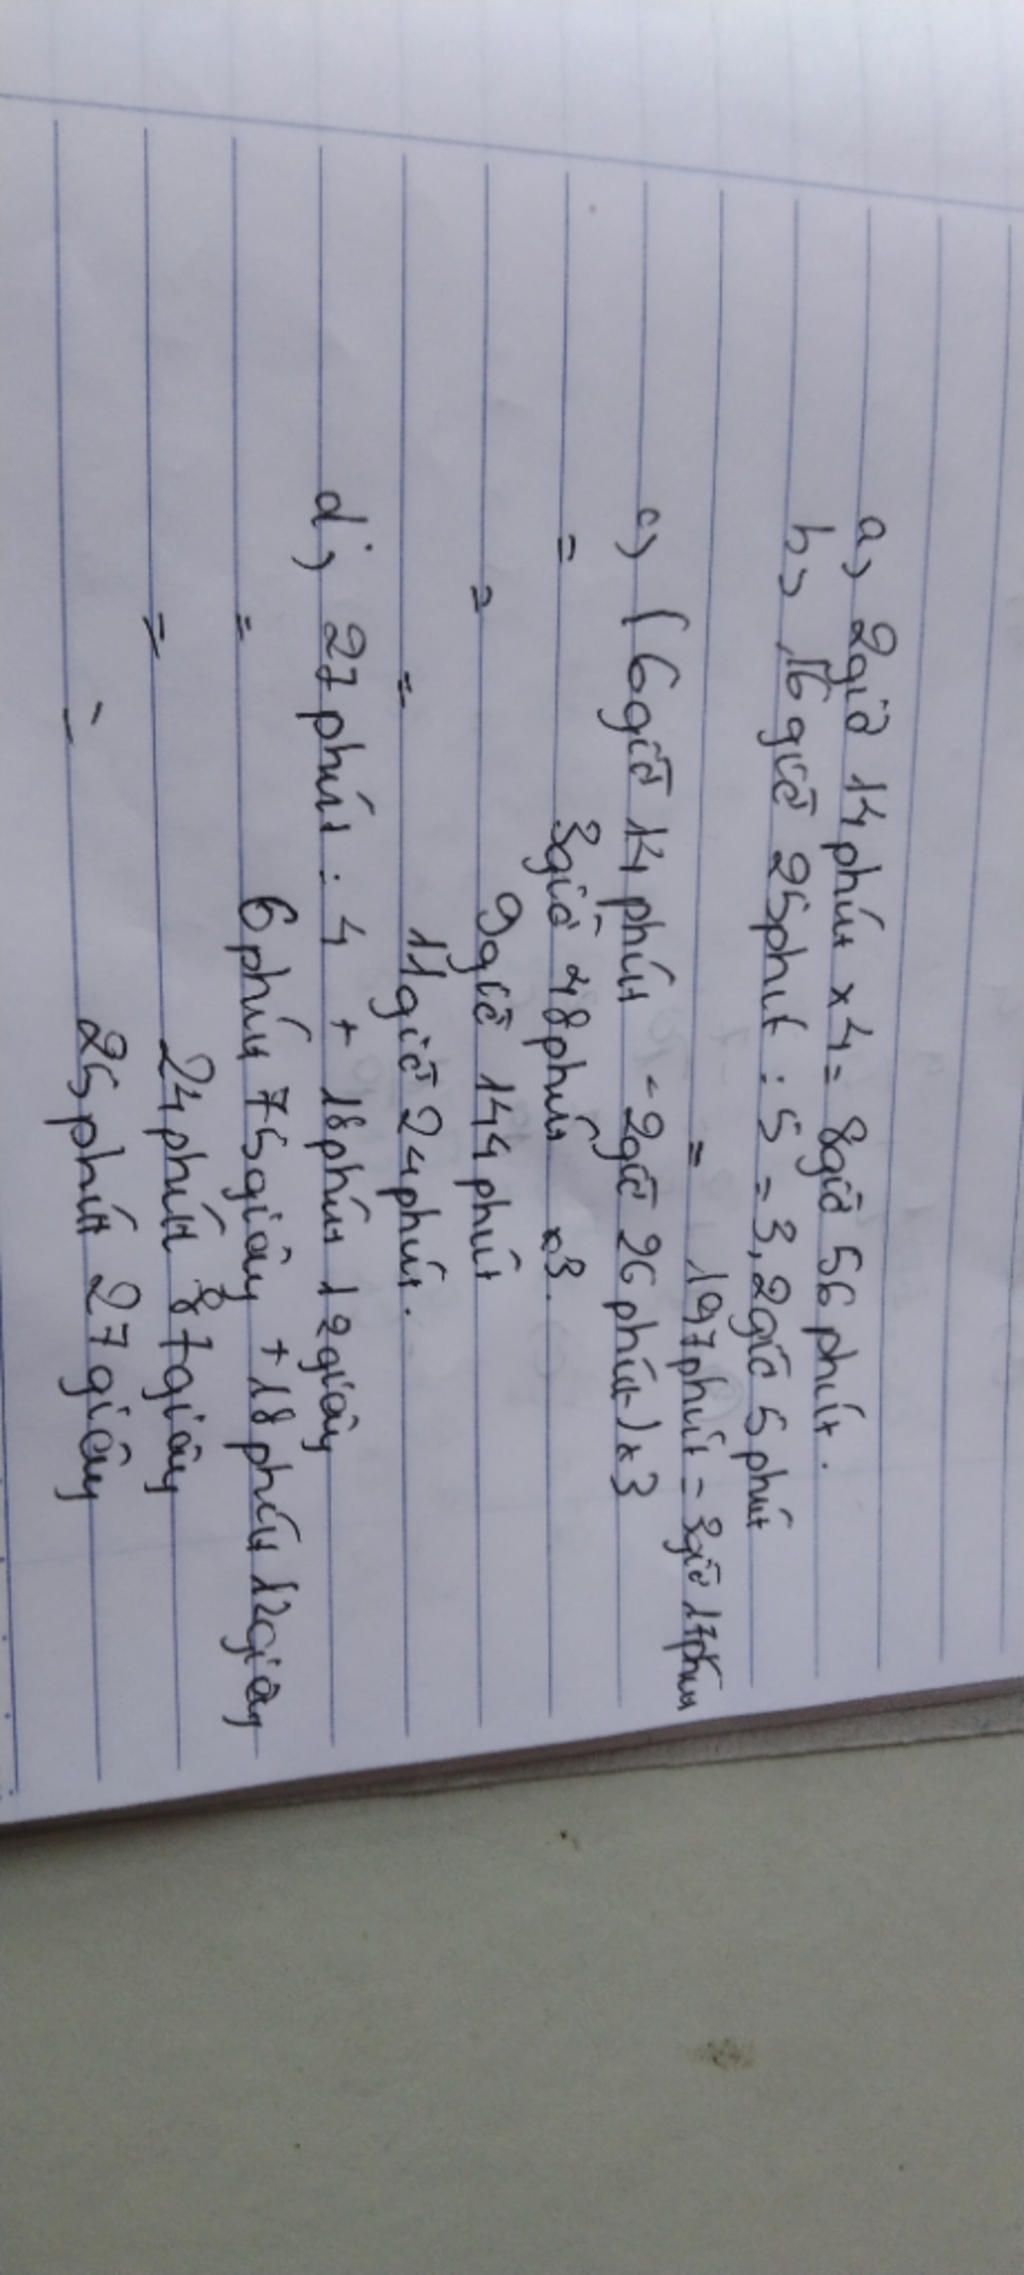 a) 2giờ 14phút x 4 = 8giờ 56 phút.
b) 16 giờ 25phút : 5 = 3,2giờ 5 phút
= 197phút = 3giờ 17phút
c) ( 6giờ 14 phút - 2giờ 26 phút ) x 3
= 3giờ 48phút x3.
= 9giờ 144 phút
= 11giờ 24phút.
d) 27phút : 4 + 18phút 12giây
= 6 phút 75giây + 18 phút 12giây
= 24phút 87giây
= 25phút 27giây